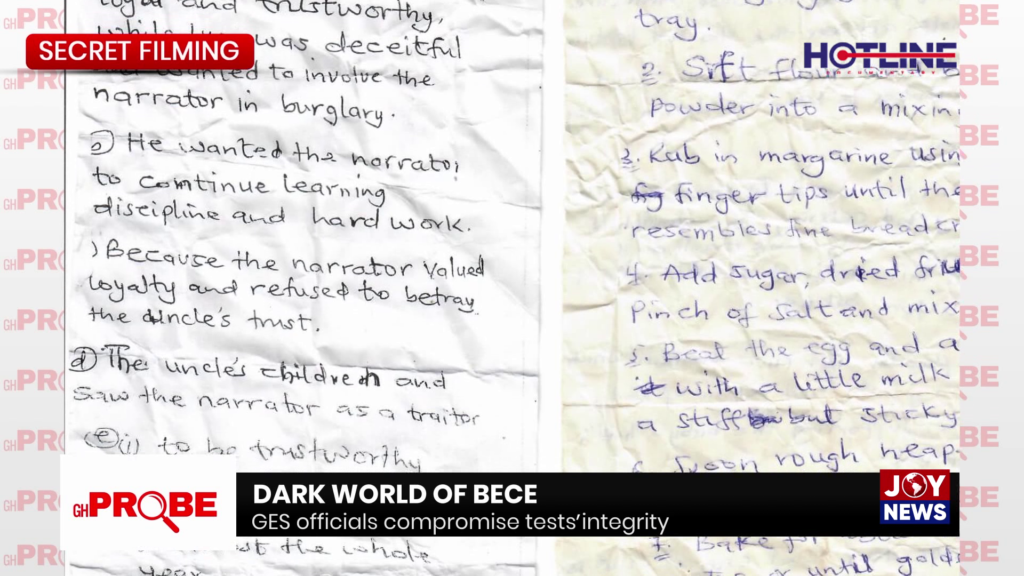 SECRET FILMING
HOTLINE
DOCUMENTARY
loyal and trustworthy,
was deceitful
wanted to involve the
narrator in burglary.
b) He wanted the narrator
to continue learning
discipline and hard work.
) Because the narrator valued
loyalty and refused to betray
the uncle's trust.
d) The uncle's children and
saw the narrator as a traitor
(e) (i) to be trustworthy
the whole
year
tray.
2. Sift flour
powder into a mixin
3. Rub in margarine usin
finger tips until the
resembles fine breadcr
4. Add sugar, dried fru
Pinch of salt and mix
5. Beat the egg and a
with a little milk
a stiff but sticky
Spoon rough heap
7. Bake for
until gold
GH PROBE
DARK WORLD OF BECE
GES officials compromise tests'integrity
JOY
NEWS